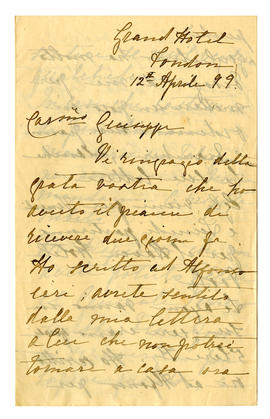 Grand Hotel
London
12th Aprile 99.
Carmo Giuseppe
Vi ringrazio della
grata vostra che ho
avuto il piacere di
ricevere due giorni fa.
Ho scritto ad Alfonso
ieri; avrete sentito
dalla mia lettera
a lui che non potrei
tornare a casa ora